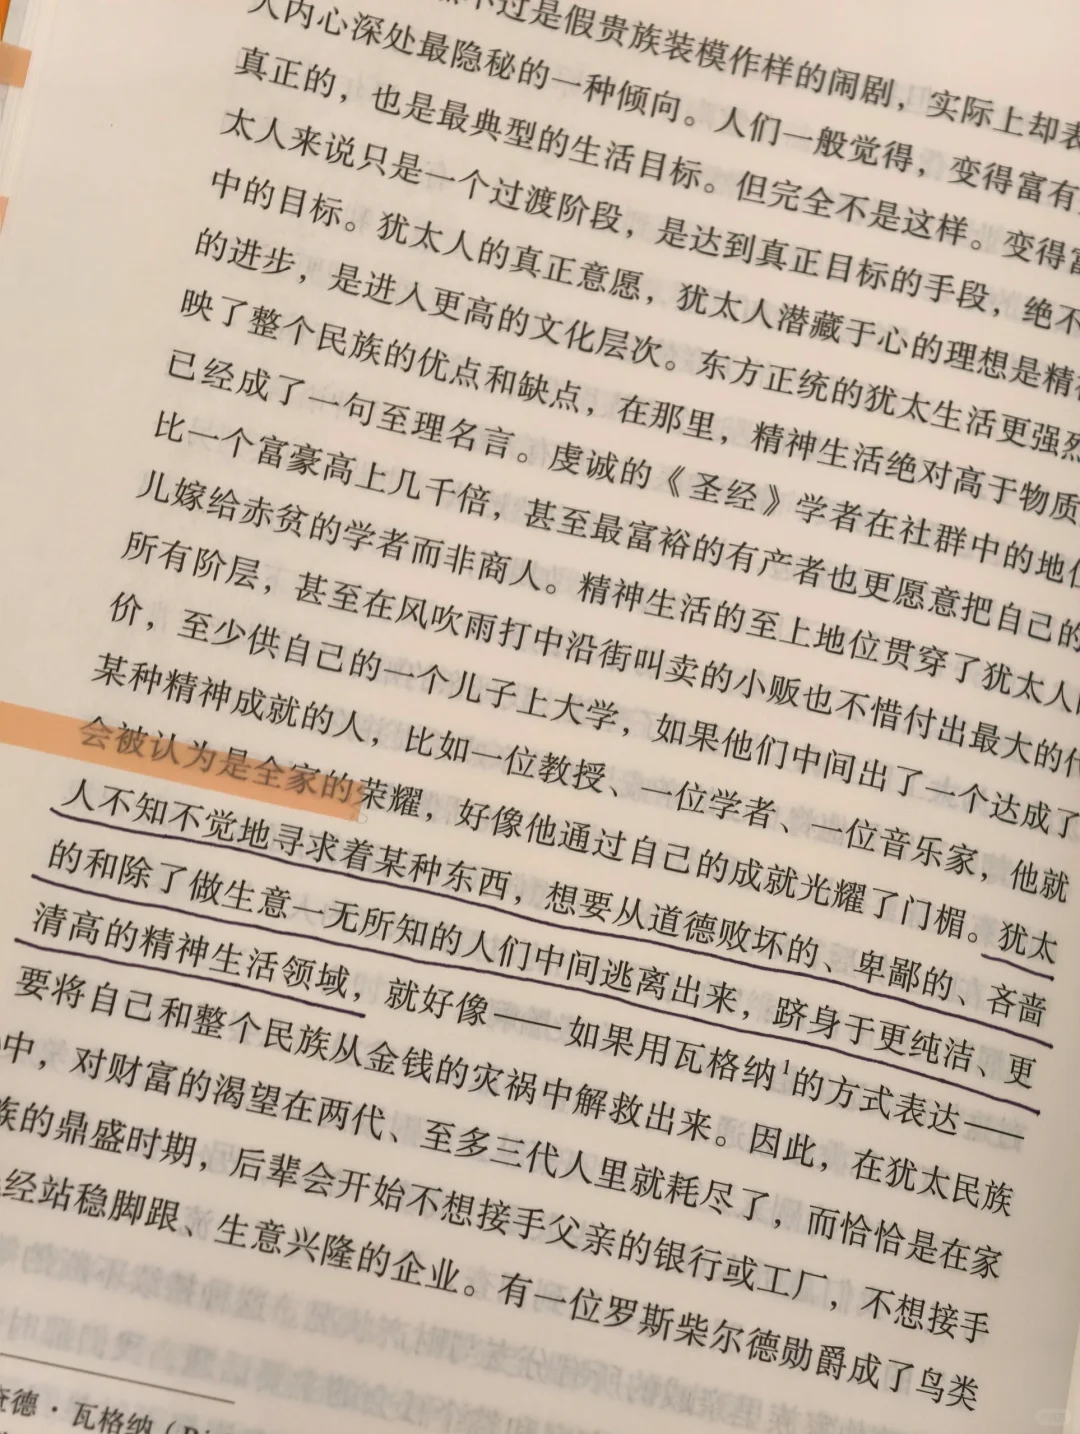 不过是假贵族装模作样的闹剧，实际上却表
人内心深处最隐秘的一种倾向。人们一般觉得，变得富有
真正的，也是最典型的生活目标。但完全不是这样。变得富
太人来说只是一个过渡阶段，是达到真正目标的手段，绝不
中的目标。犹太人的真正意愿，犹太人潜藏于心的理想是精神
的进步，是进入更高的文化层次。东方正统的犹太生活更强烈
映了整个民族的优点和缺点，在那里，精神生活绝对高于物质
已经成了一句至理名言。虔诚的《圣经》学者在社群中的地位
比一个富豪高上几千倍，甚至最富裕的有产者也更愿意把自己的
儿嫁给赤贫的学者而非商人。精神生活的至上地位贯穿了犹太人
所有阶层，甚至在风吹雨打中沿街叫卖的小贩也不惜付出最大的代
价，至少供自己的一个儿子上大学，如果他们中间出了一个达成了
某种精神成就的人，比如一位教授、一位学者、一位音乐家，他就
会被认为是全家的荣耀，好像他通过自己的成就光耀了门楣。犹太
人不知不觉地寻求着某种东西，想要从道德败坏的、卑鄙的、吝啬
的和除了做生意一无所知的人们中间逃离出来，跻身于更纯洁、更
清高的精神生活领域，就好像——如果用瓦格纳¹的方式表达——
要将自己和整个民族从金钱的灾祸中解救出来。因此，在犹太民族
中，对财富的渴望在两代、至多三代人里就耗尽了，而恰恰是在家
族的鼎盛时期，后辈会开始不想接手父亲的银行或工厂，不想接手
经站稳脚跟、生意兴隆的企业。有一位罗斯柴尔德勋爵成了鸟类
查德·瓦格纳（Ri